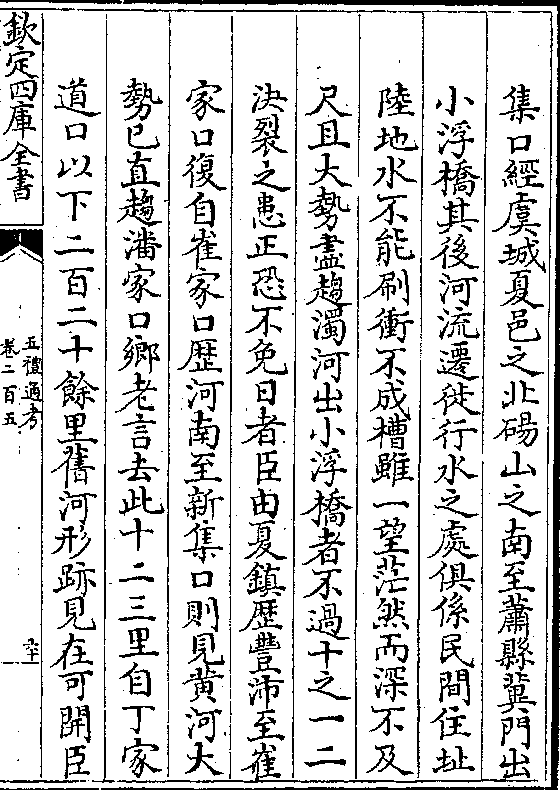 集口經虞城夏邑之北碭山之南至蕭縣冀門出
小浮橋其後河流遷徙行水之處俱係民間住址
陸地水不能刷衝不成槽雖一望茫然而深不及
尺且大勢盡趨濁河出小浮橋者不過十之一二
決裂之患正恐不免日者臣由夏鎮歴豐沛至崔
家口復自崔家口歴河南至新集口則見黄河大
勢已直趨潘家口鄉老言去此十二三里自丁家
道口以下二百二十餘里舊河形跡見在可開臣
欽定四庫全書
五禮通考
卷二百五